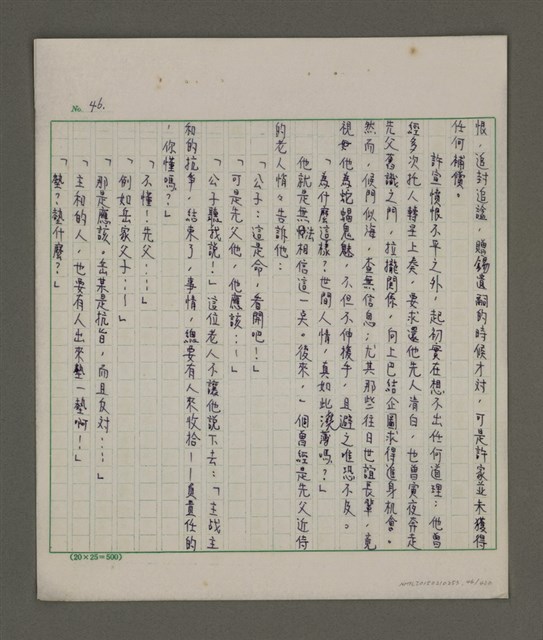 No. 46.
恨，追封追謚，賜錫遺嗣的時候才对，可是許家並未獲得
任何補償。
許宣憤恨不平之外，起初實在想不出任何道理；他曾
經多次托人轉呈上奏，要求還他先人清白，也曾夤夜奔走
先父舊識之門，拉攏関係，向上巴結企圖求得進身机會。
然而，候門似海，杳無信息；尤其那些往日世誼長輩，竟
視如他為蛇蝎鬼魅，不但不伸援手，且避之唯恐不及。
「為什麼這樣？世間人情，真如此澆薄嗎？」
他就是無法相信這一点。後來，一個曾經是先父近侍
的老人悄悄告訴他：
「公子：這是命，看開吧！」
「可是先父他，他應該…！」
「公子聽我說！」這位老人不讓他說下去：「主战主
和的抗爭，結束了，事情，總要有人來收拾——負責任的
，你懂嗎？」
「不懂！先父……」
「例如岳家父子…！」
「那是應該。岳某是抗旨，而且反対……」
「主和的人，也要有人出來墊一墊啊！」
「墊？墊什麼？」
(20×25=500)